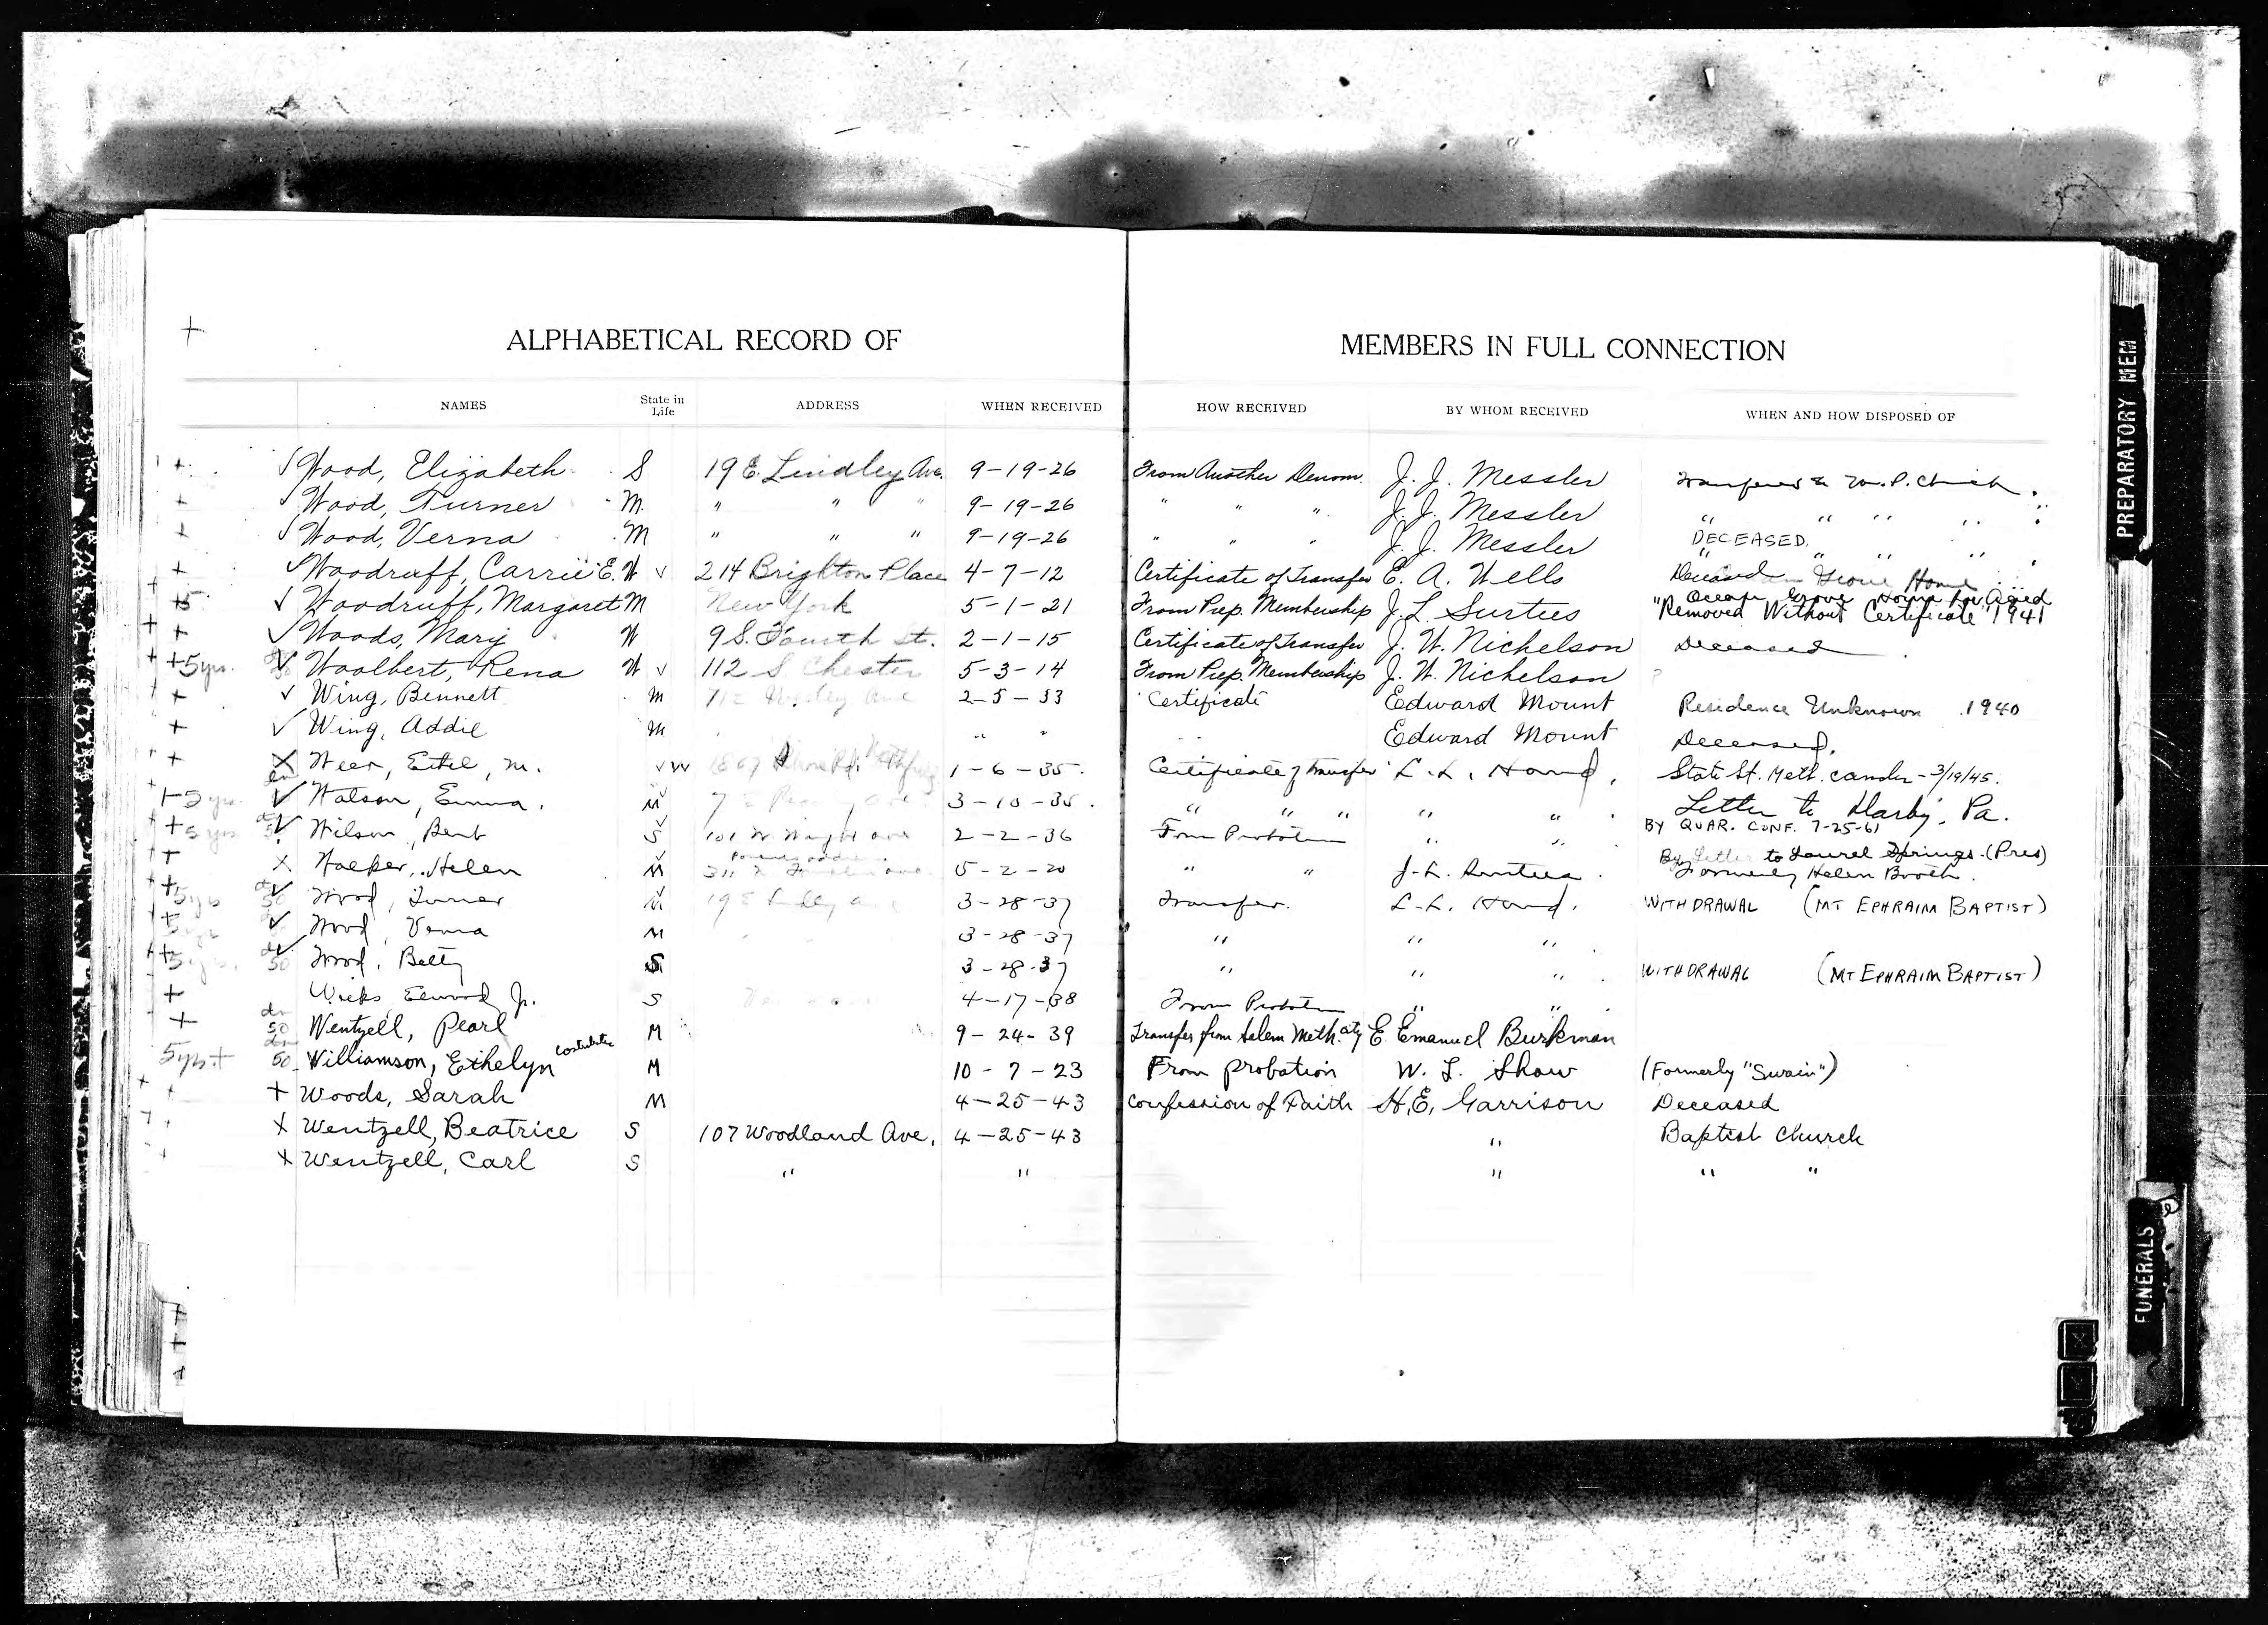 ALPHABETICAL RECORD OF MEMBERS IN FULL CONNECTION
NAMES State in Life ADDRESS WHEN RECEIVED HOW RECEIVED BY WHOM RECEIVED WHEN AND HOW DISPOSED OF
+ √ Wood, Elizabeth S 19 E. Lindley Ave. 9-19-26 From Another Denom. J. J. Messler
+ √ Wood, Turner M. " " " 9-19-26 " " " J. J. Messler " " " " "
+ √ Wood, Verna M " " " 9-19-26 " " " J. J. Messler DECEASED " " " " "
+ √ Woodruff, Carrie E. W √ 214 Brighton Place 4-7-12 Certificate of Transfer E. A. Wells Deceased Ocean Grove Home for Aged
√ Woodruff, Margaret M New York 5-1-21 From Prep. Membership J. L. Surtees "Removed Without Certificate" 1941
+ √ Woods, Mary W 9 S. Fourth St. 2-1-15 Certificate of Transfer J. W. Nichelson Deceased
+ +5yrs. √ Woolbert, Rena W √ 112 S Chester 5-3-14 From Prep. Membership J. W. Nichelson
+ √ Wing, Bennett M 2-5-33 Certificate Edward Mount Residence Unknown 1940
+ √ Wing, Addie M " " Edward Mount Deceased.
+ X Weer, Ethel, M. √ W 1-6-35. Certificate of transfer L. L. Hand. State St. Meth. Camden - 3/19/45.
√ Watson, Emma. M 3-10-35. " " " " " Letter to Darby, Pa.
+ √ Wilson, Bert S 101 W Wright ave 2-2-36 From Probation " " BY QUAR. CONF. 7-25-61
+ X Walker, Helen M 5-2-20 " " J. L. Surtees. By Letter to Laurel Springs. (Pres) Formerly Helen Booth.
+5yrs 50 √ Wood, Turner M 3-28-37 Transfer. L. L. Hand. WITHDRAWAL (MT EPHRAIM BAPTIST)
√ Wood, Verna M 3-28-37 " " "
50 √ Wood, Betty S 3-28-37 " " " WITHDRAWAL (MT EPHRAIM BAPTIST)
+ Wicks Elwood Jr. S 4-17-38 From Probation " "
+ 50 Wentzell, Pearl M 9-24-39 Transfer from Salem Meth. E. Emanuel Burkman
5yrs+ 50 Williamson, Ethelyn M 10-7-23 From probation W. L. Shaw (Formerly "Swain")
+ Woods, Sarah M 4-25-43 Confession of Faith H. E. Garrison Deceased
X Wentzell, Beatrice S 107 Woodland Ave. 4-25-43 " Baptist Church
X Wentzell, Carl S " " " " "
PREPARATORY MEM
FUNERALS